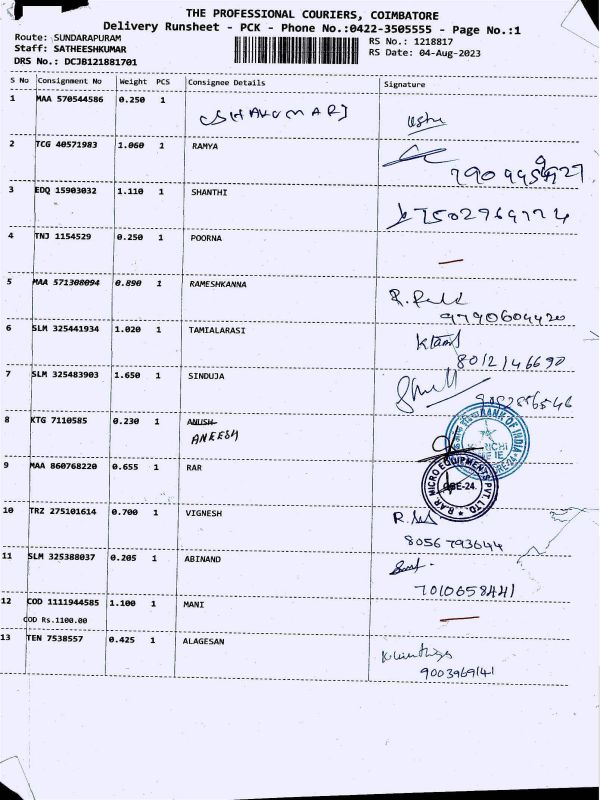 THE PROFESSIONAL COURIERS, COIMBATORE
Delivery Runsheet - PCK - Phone No.:0422-3505555 - Page No.:1
Route: SUNDARAPURAM RS No.: 1218817
Staff: SATHEESHKUMAR RS Date: 04-Aug-2023
DRS No.: DCJB121881701
S No Consignment No Weight PCS Consignee Details Signature
1 MAA 570544586 0.250 1
2 TCG 40571983 1.060 1 RAMYA
3 EDQ 15903032 1.110 1 SHANTHI
4 TNJ 1154529 0.250 1 POORNA
5 MAA 571308094 0.890 1 RAMESHKANNA
9790604420
6 SLM 325441934 1.020 1 TAMIALARASI
8012146690
7 SLM 325483903 1.650 1 SINDUJA
8 KTG 7110585 0.230 1 ANUSH
ANEESH
BANK OF INDIA
9 MAA 860768220 0.655 1 RAR
R.AR. MICRO EQUIPMENTS PVT. LTD.
CBE-24.
10 TRZ 275101614 0.700 1 VIGNESH
8056793644
11 SLM 325388037 0.205 1 ABINAND
7010658441
12 COD 1111944585 1.100 1 MANI
COD Rs.1100.00
13 TEN 7538557 0.425 1 ALAGESAN
9003969141